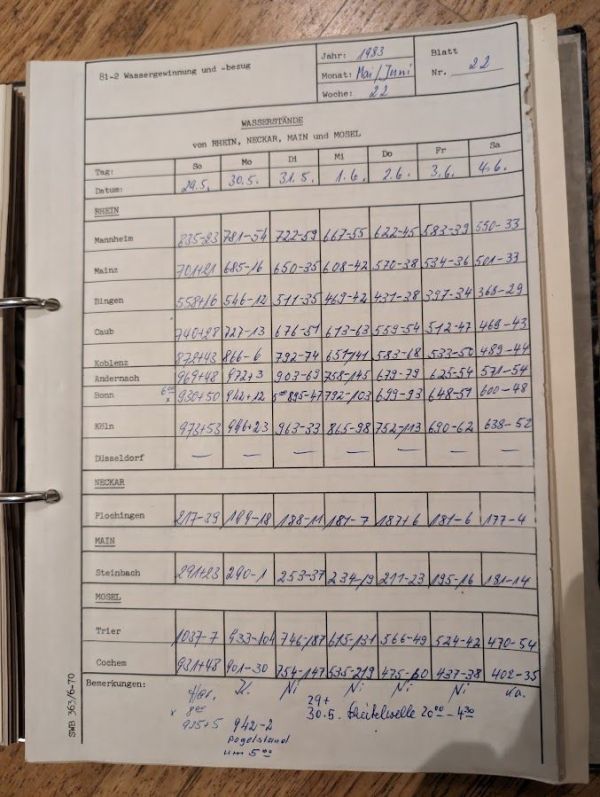 81-2 Wassergewinnung und -bezug
Jahr: 1983
Monat: Mai/Juni
Woche: 22
Blatt
Nr. 22
WASSERSTÄNDE
von RHEIN, NECKAR, MAIN und MOSEL
Tag: So Mo Di Mi Do Fr Sa
Datum: 29.5. 30.5. 31.5. 1.6. 2.6. 3.6. 4.6.
RHEIN
Mannheim 835-23 781-54 722-59 667-55 622-45 583-39 550-33
Mainz 701+21 685-16 650-35 608-42 570-38 534-36 501-33
Bingen 558+16 546-12 511-35 469-42 431-38 397-34 368-29
Caub 740+28 727-13 676-51 613-63 559-54 512-47 469-43
Koblenz 872+43 866-6 792-74 651-141 583-68 533-50 489-44
Andernach 969+48 972+3 903-69 758-145 679-79 625-54 571-54
Bonn 6 00 x 930+50 942+12 5 00 895-47 792-103 699-93 648-51 600-48
Köln 973+53 996+23 963-33 865-98 752-113 690-62 638-52
Düsseldorf — — — — — — —
NECKAR
Plochingen 217-39 199-18 188-11 181-7 187+6 181-6 177-4
MAIN
Steinbach 291+23 290-1 253-37 234-19 211-23 195-16 181-14
MOSEL
Trier 1037-7 933-104 746-187 615-131 566-49 524-42 470-54
Cochem 931+48 901-30 754-147 535-219 475-60 437-38 402-35
Bemerkungen: Ni Ni Ni Ni
29+
x 8 00 30.5. Scheitelwelle 20 00 - 4 30
935+5 942-2
Pegelstand
um 5 00
SWB 363/6-70